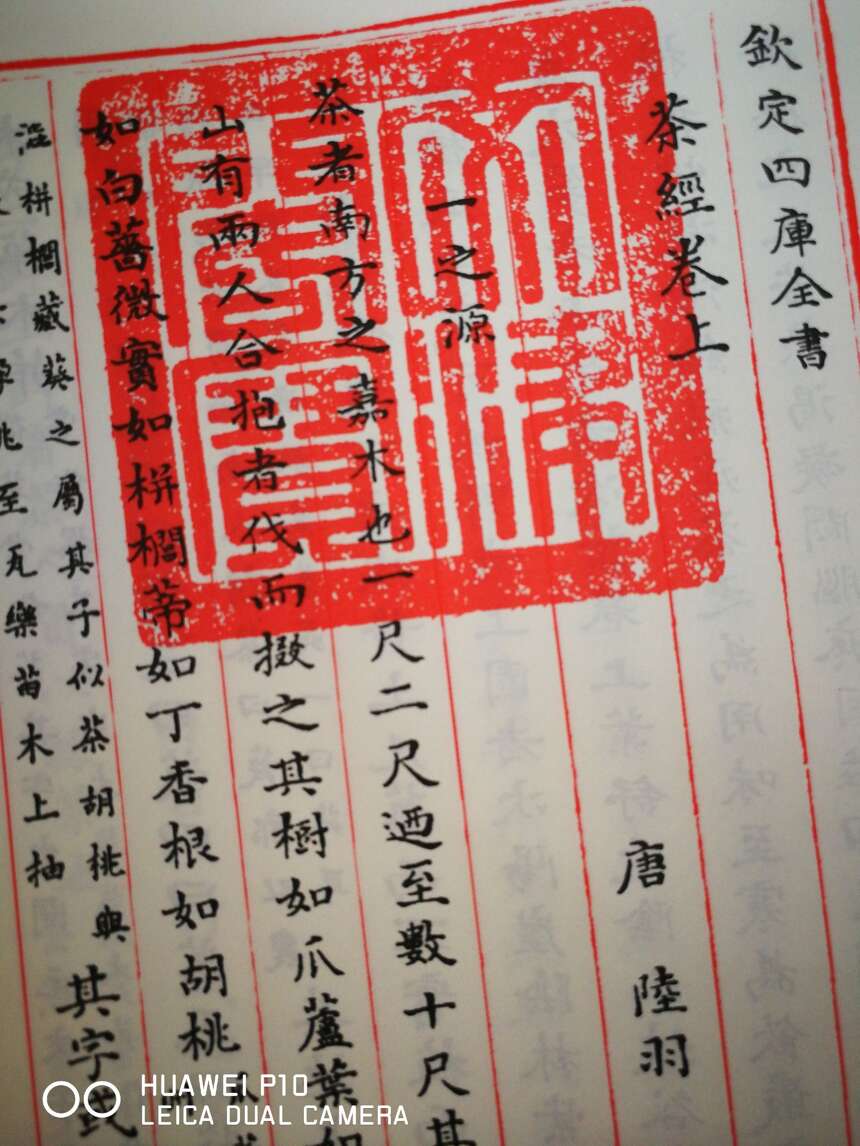 欽定四庫全書
茶經卷上
唐 陸羽
一之源
茶者南方之嘉木也一尺二尺迺至數十尺其
山有兩人合抱者伐而掇之其樹如瓜蘆葉如
如白薔薇實如栟櫚蒂如丁香根如胡桃
澁栟櫚藏葵之屬其子似茶胡桃與
至瓦樂苗木上抽
其字或
HUAWEI P10
LEICA DUAL CAMERA